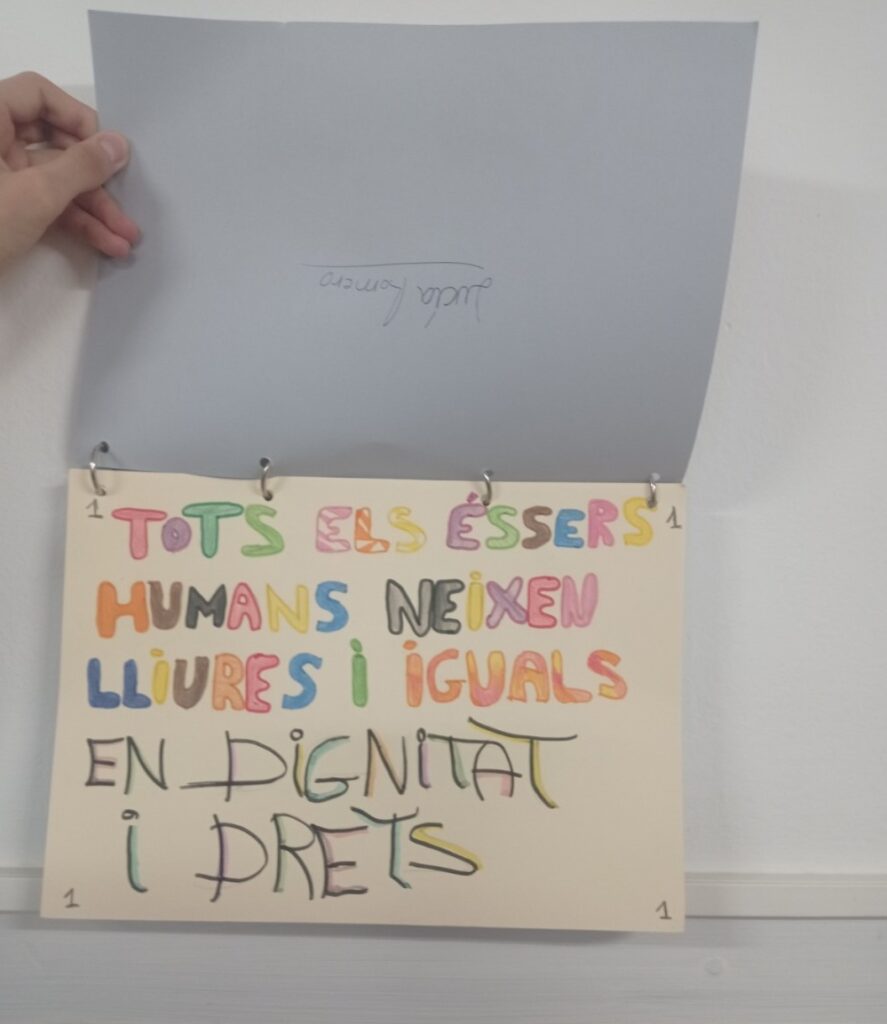 Lucía Romero
1 TOTS ELS ÉSSERS 1
HUMANS NEIXEN
LLIURES I IGUALS
EN DIGNITAT
I DRETS
1 1